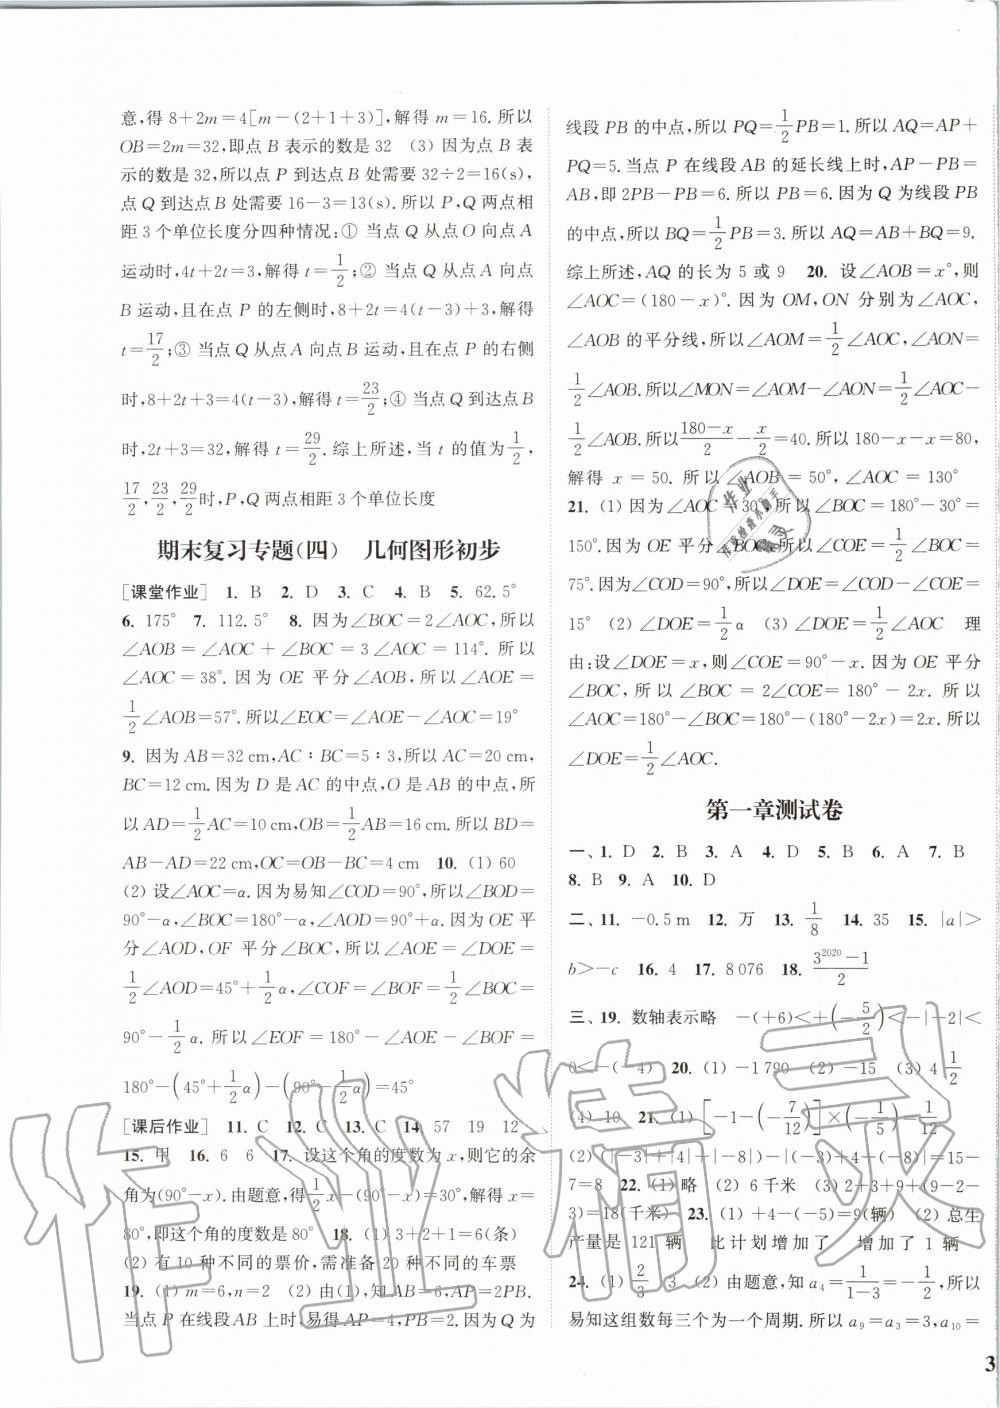 意,得 8+2m=4[m-(2+1+3)],解得 m=16. 所以
OB=2m=32,即点 B 表示的数是 32 (3) 因为点 B 表
示的数是 32,所以点 P 到达点 B 处需要 32÷2=16(s),
点 Q 到达点 B 处需要 16-3=13(s). 所以 P,Q 两点相
距 3 个单位长度分四种情况:① 当点 Q 从点 O 向点 A
运动时,4t+2t=3,解得 t=1/2;② 当点 Q 从点 A 向点
B 运动,且在点 P 的左侧时,8+2t=4(t-3)+3,解得
t=17/2;③ 当点 Q 从点 A 向点 B 运动,且在点 P 的右侧
时,8+2t+3=4(t-3),解得 t=23/2;④ 当点 Q 到达点 B
时,2t+3=32,解得 t=29/2. 综上所述,当 t 的值为 1/2,
17/2,23/2,29/2时,P,Q 两点相距 3 个单位长度
期末复习专题(四) 几何图形初步
[课堂作业] 1. B 2. D 3. C 4. B 5. 62.5°
6. 175° 7. 112.5° 8. 因为∠BOC=2∠AOC,所以
∠AOB=∠AOC+∠BOC=3∠AOC=114°. 所以
∠AOC=38°. 因为 OE 平分∠AOB,所以∠AOE=
1/2∠AOB=57°. 所以∠EOC=∠AOE-∠AOC=19°
9. 因为 AB=32 cm,AC∶BC=5∶3,所以 AC=20 cm,
BC=12 cm. 因为 D 是 AC 的中点,O 是 AB 的中点,所
以 AD=1/2AC=10 cm,OB=1/2AB=16 cm. 所以 BD=
AB-AD=22 cm,OC=OB-BC=4 cm 10. (1) 60
(2) 设∠AOC=α. 因为易知∠COD=90°,所以∠BOD=
90°-α,∠BOC=180°-α,∠AOD=90°+α. 因为 OE 平
分∠AOD,OF 平分∠BOC,所以∠AOE=∠DOE=
1/2∠AOD=45°+1/2α,∠COF=∠BOF=1/2∠BOC=
90°-1/2α. 所以∠EOF=180°-∠AOE-∠BOF=
180°-(45°+1/2α)-(90°-1/2α)=45°
[课后作业] 11. C 12. C 13. C 14. 57 19 12
15. 甲 16. 6 6 17. 设这个角的度数为 x,则它的余
角为(90°-x). 由题意,得1/2x-(90°-x)=30°,解得 x=
80°,即这个角的度数是 80° 18. (1) 3+2+1=6(条)
(2) 有 10 种不同的票价,需准备 20 种不同的车票
19. (1) m=6,n=2 (2) 由(1),知AB=6,AP=2PB.
当点 P 在线段AB 上时,易得 AP=4,PB=2. 因为 Q 为
线段 PB 的中点,所以 PQ=1/2PB=1. 所以 AQ=AP+
PQ=5. 当点 P 在线段 AB 的延长线上时,AP-PB=
AB,即 2PB-PB=6. 所以 PB=6. 因为 Q 为线段 PB
的中点,所以 BQ=1/2PB=3. 所以 AQ=AB+BQ=9.
综上所述,AQ 的长为 5 或 9 20. 设∠AOB=x°,则
∠AOC=(180-x)°. 因为 OM,ON 分别为∠AOC,
∠AOB 的平分线,所以∠AOM=1/2∠AOC,∠AON=
1/2∠AOB. 所以∠MON=∠AOM-∠AON=1/2∠AOC-
1/2∠AOB. 所以(180-x)/2-x/2=40. 所以 180-x-x=80,
解得 x=50. 所以∠AOB=50°,∠AOC=130°
21. (1) 因为∠AOC=30°,所以∠BOC=180°-30°=
150°. 因为 OE 平分∠BOC,所以∠COE=1/2∠BOC=
75°. 因为∠COD=90°,所以∠DOE=∠COD-∠COE=
15° (2) ∠DOE=1/2α (3) ∠DOE=1/2∠AOC 理
由:设∠DOE=x,则∠COE=90°-x. 因为 OE 平分
∠BOC,所以∠BOC=2∠COE=180°-2x. 所以
∠AOC=180°-∠BOC=180°-(180°-2x)=2x. 所以
∠DOE=1/2∠AOC.
第一章测试卷
一、1. D 2. B 3. A 4. D 5. B 6. A 7. B
8. B 9. A 10. D
二、11. -0.5 m 12. 万 13. 1/8 14. 35 15. |a|>
b>-c 16. 4 17. 8 076 18. (3^2020-1)/2
三、19. 数轴表示略 -(+6)<+(-5/2)<-|-2|<
0<-(-4) 20. (1) -1 790 (2) -15 (3) 4 1/2
(4) 10 21. (1) [-1-(-7/12)]×(-1/5)=1/12
(2) (|-3|+|4|+|-8|)-(-3+4-8)=15-
7=8 22. (1) 略 (2) 6 千米 (3) 2+3+9+(9-2-
3)=18(千米) 23. (1) +4-(-5)=9(辆) (2) 总生
产量是 121 辆 比计划增加了 增加了 1 辆
24. (1) 2/3 3 (2) 由题意,知 a4=1/(1-3)=-1/2,所以
易知这组数每三个为一个周期. 所以 a9=a3=3,a10=
3
作业精灵